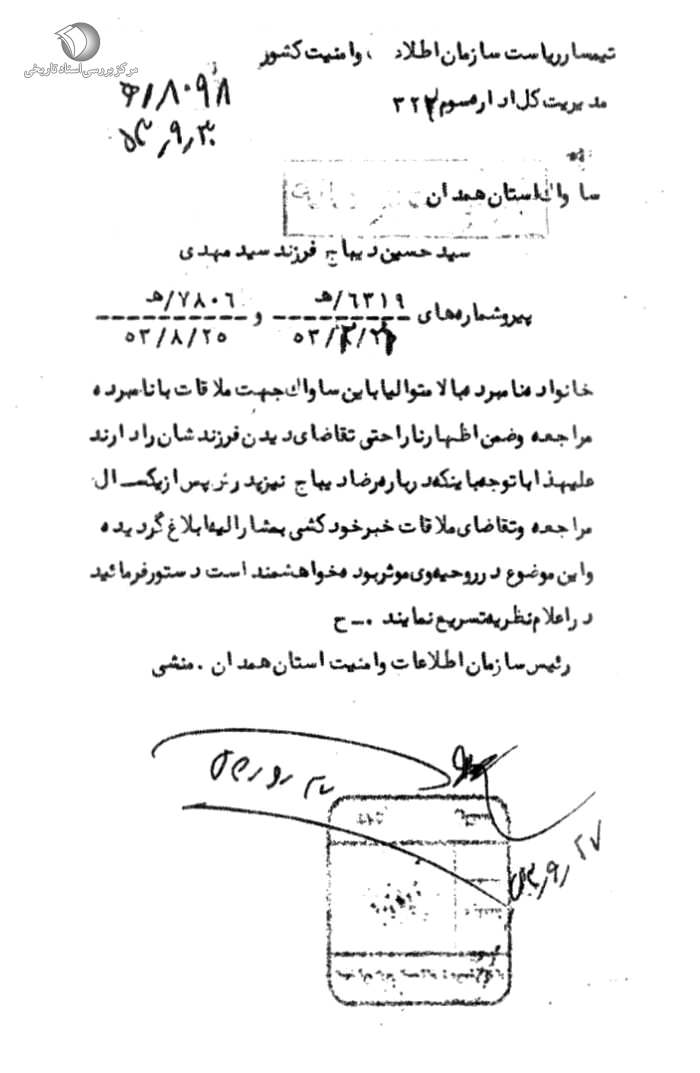 مرکز بررسی اسناد تاریخی
تیمسار ریاست سازمان اطلاعات وامنیت کشور
مدیریت کل اداره سوم ۳۲۲
۸۰۹۸
۵۳٫۹٫۳۰
ساواك استان همدان
سید حسین دیباج فرزند سید مهدی
پیروشماره‌های ۶۳۱۹/هـ و ۷۸۰۶/هـ
۵۳/۸/۲۵
خانواده نامبرده بالا متوالیا باین ساواك جهت ملاقات با نامبرده
مراجعه وضمن اظهار ناراحتی تقاضای دیدن فرزندشان را دارند
علیهذا با توجه باینکه درباره رضا دیباج نیز پدرش پس از یکسال
مراجعه وتقاضای ملاقات خبر خودکشی بمشارالیه ابلاغ گردیده
واین موضوع در روحیه وی موثر بوده خواهشمند است دستور فرمائید
در اعلام نظریه تسریع نمایند .ـ ح
رئیس سازمان اطلاعات وامنیت استان همدان . منشی
۵۳٫۹٫۲۷